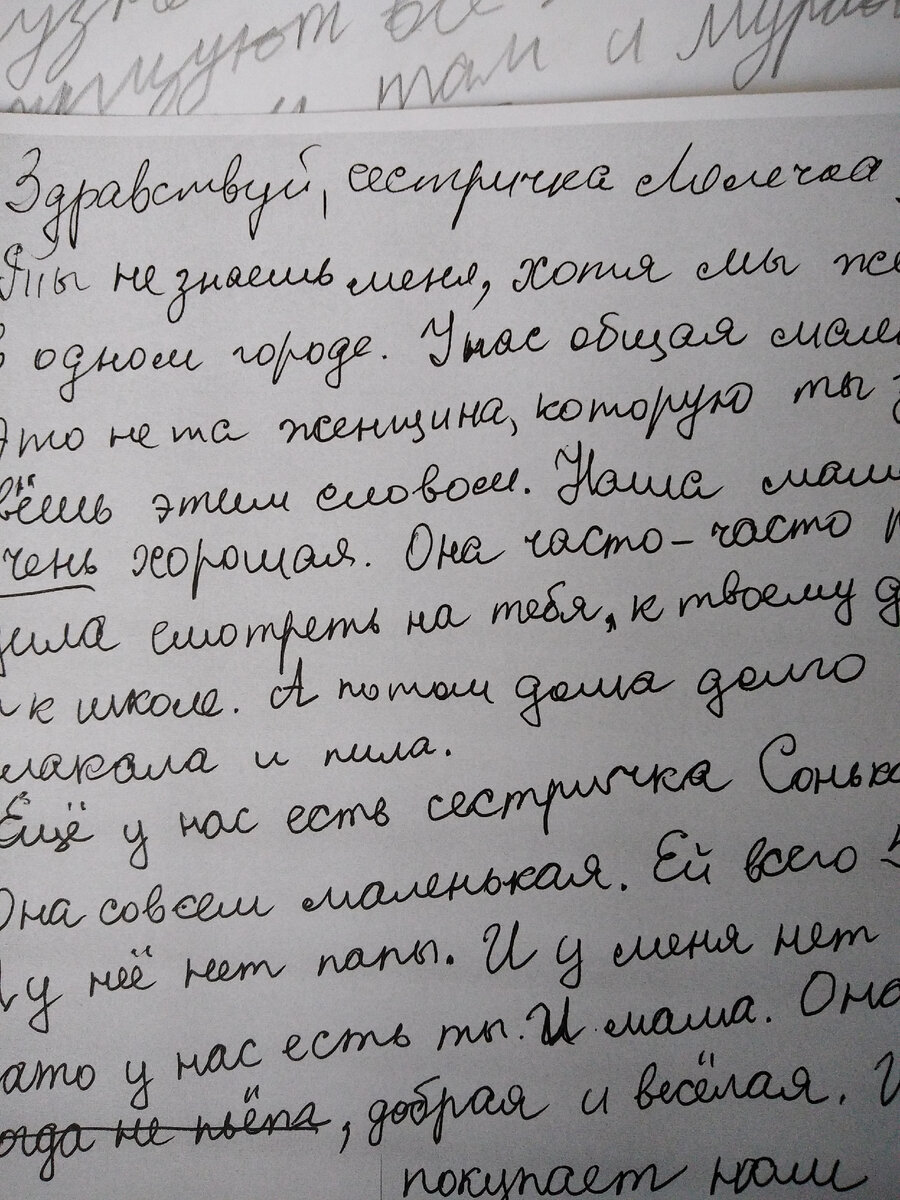 все
и там и
Здравствуй, сестричка
Ты не знаешь меня, хотя мы же
в одном городе. У нас общая
Это не та женщина, которую ты
вёшь этим словом. Наша мам
чень хорошая. Она часто-часто
дила смотреть на тебя, к твоему д
и к школе. А потом дома долго
лакала и пила.
Ещё у нас есть сестричка Сонька
Она совсем маленькая. Ей всего 5
И у неё нет папы. И у меня нет
ато у нас есть ты. И мама. Она
огда не пьёт, добрая и весёлая. И
покупает нам